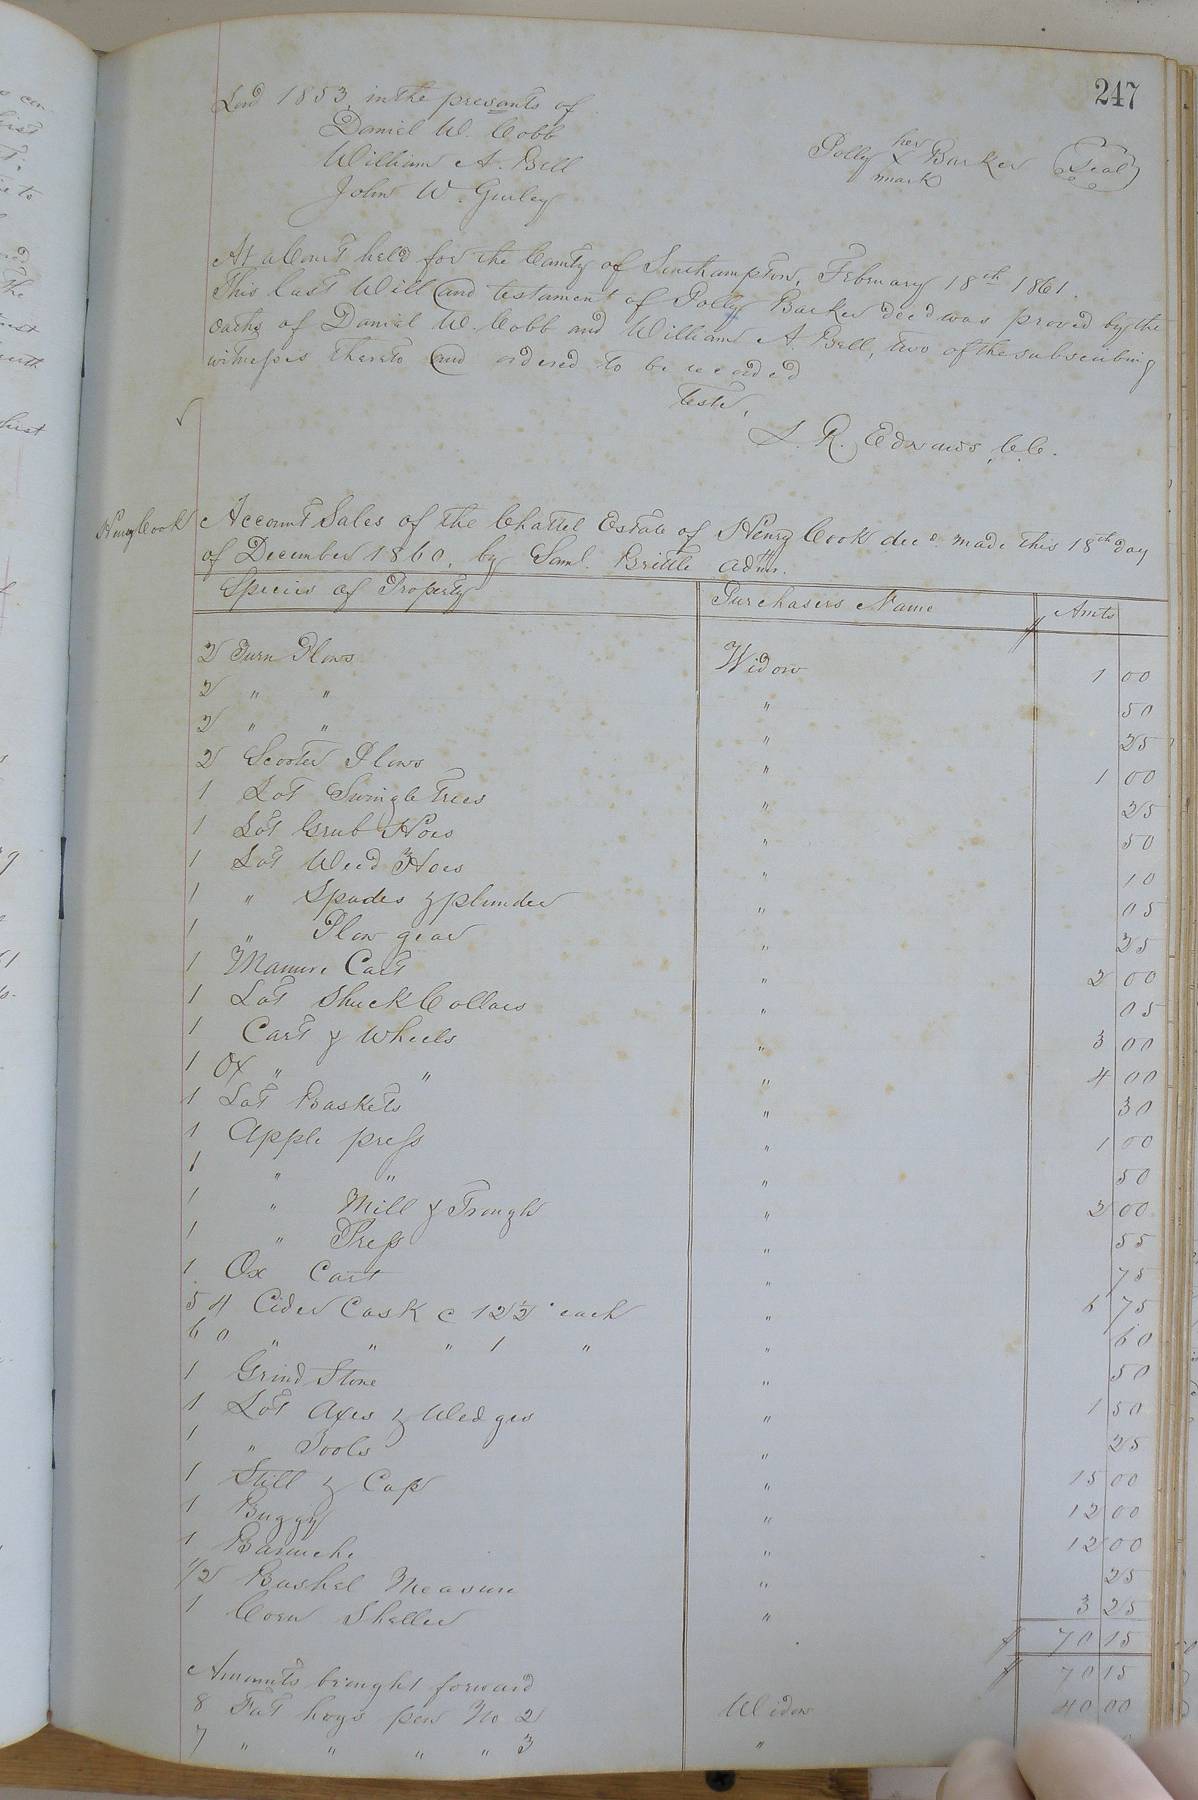 247
Lord 1853, in the presants of
Daniel W. Cobb
William A. Bell
John W. Gurley
her
Polly X Barker (Seal)
mark
At a Court held for the County of Southampton, February 18th 1861.
This last Will and testament of Polly Barker decd was proved by the
oaths of Daniel W. Cobb and William A. Bell, two of the subscribing
witnesses thereto and ordered to be recorded
Teste,
L. R. Edwards, C.C.
Henry Cook
Account Sales of the Chattel Estate of Henry Cook decd. made this 18th day
of December 1860, by Saml. Brittle admr.
Species of Property Purchasers Name Amts
2 Turn Plows Widow 1 00
2 " " " 50
2 " " " 25
2 Scooter Plows " 1 00
1 Lot Swingle Trees " 25
1 Lot Grub Hoes " 50
1 Lot Weed Hoes " 10
1 " Spades & plunder " 05
1 " Plow gear " 25
1 Manure Cart " 2 00
1 Lot Shuck Collars " 05
1 Cart & Wheels " 3 00
1 Ox " " " 4 00
1 Lot Baskets " 30
1 Apple press " 1 00
1 " " " 50
1 " Mill & Trough " 2 00
1 " Press " 55
1 Ox Cart " 75
54 Cider Cask c 12½ each " 6 75
60 " " " 1 " " 60
1 Grind Stone " 50
1 Lot Axes & Wedges " 1 50
1 " Tools " 25
1 Still & Cap " 15 00
1 Buggy " 12 00
1 Barouche " 12 00
1/2 Bushel Measure " 25
1 Corn Sheller " 3 25
$ 70 15
Amounts brought forward $ 70 15
8 Fat hogs pen No 2 Widow 40 00
7 " " " " 3 "